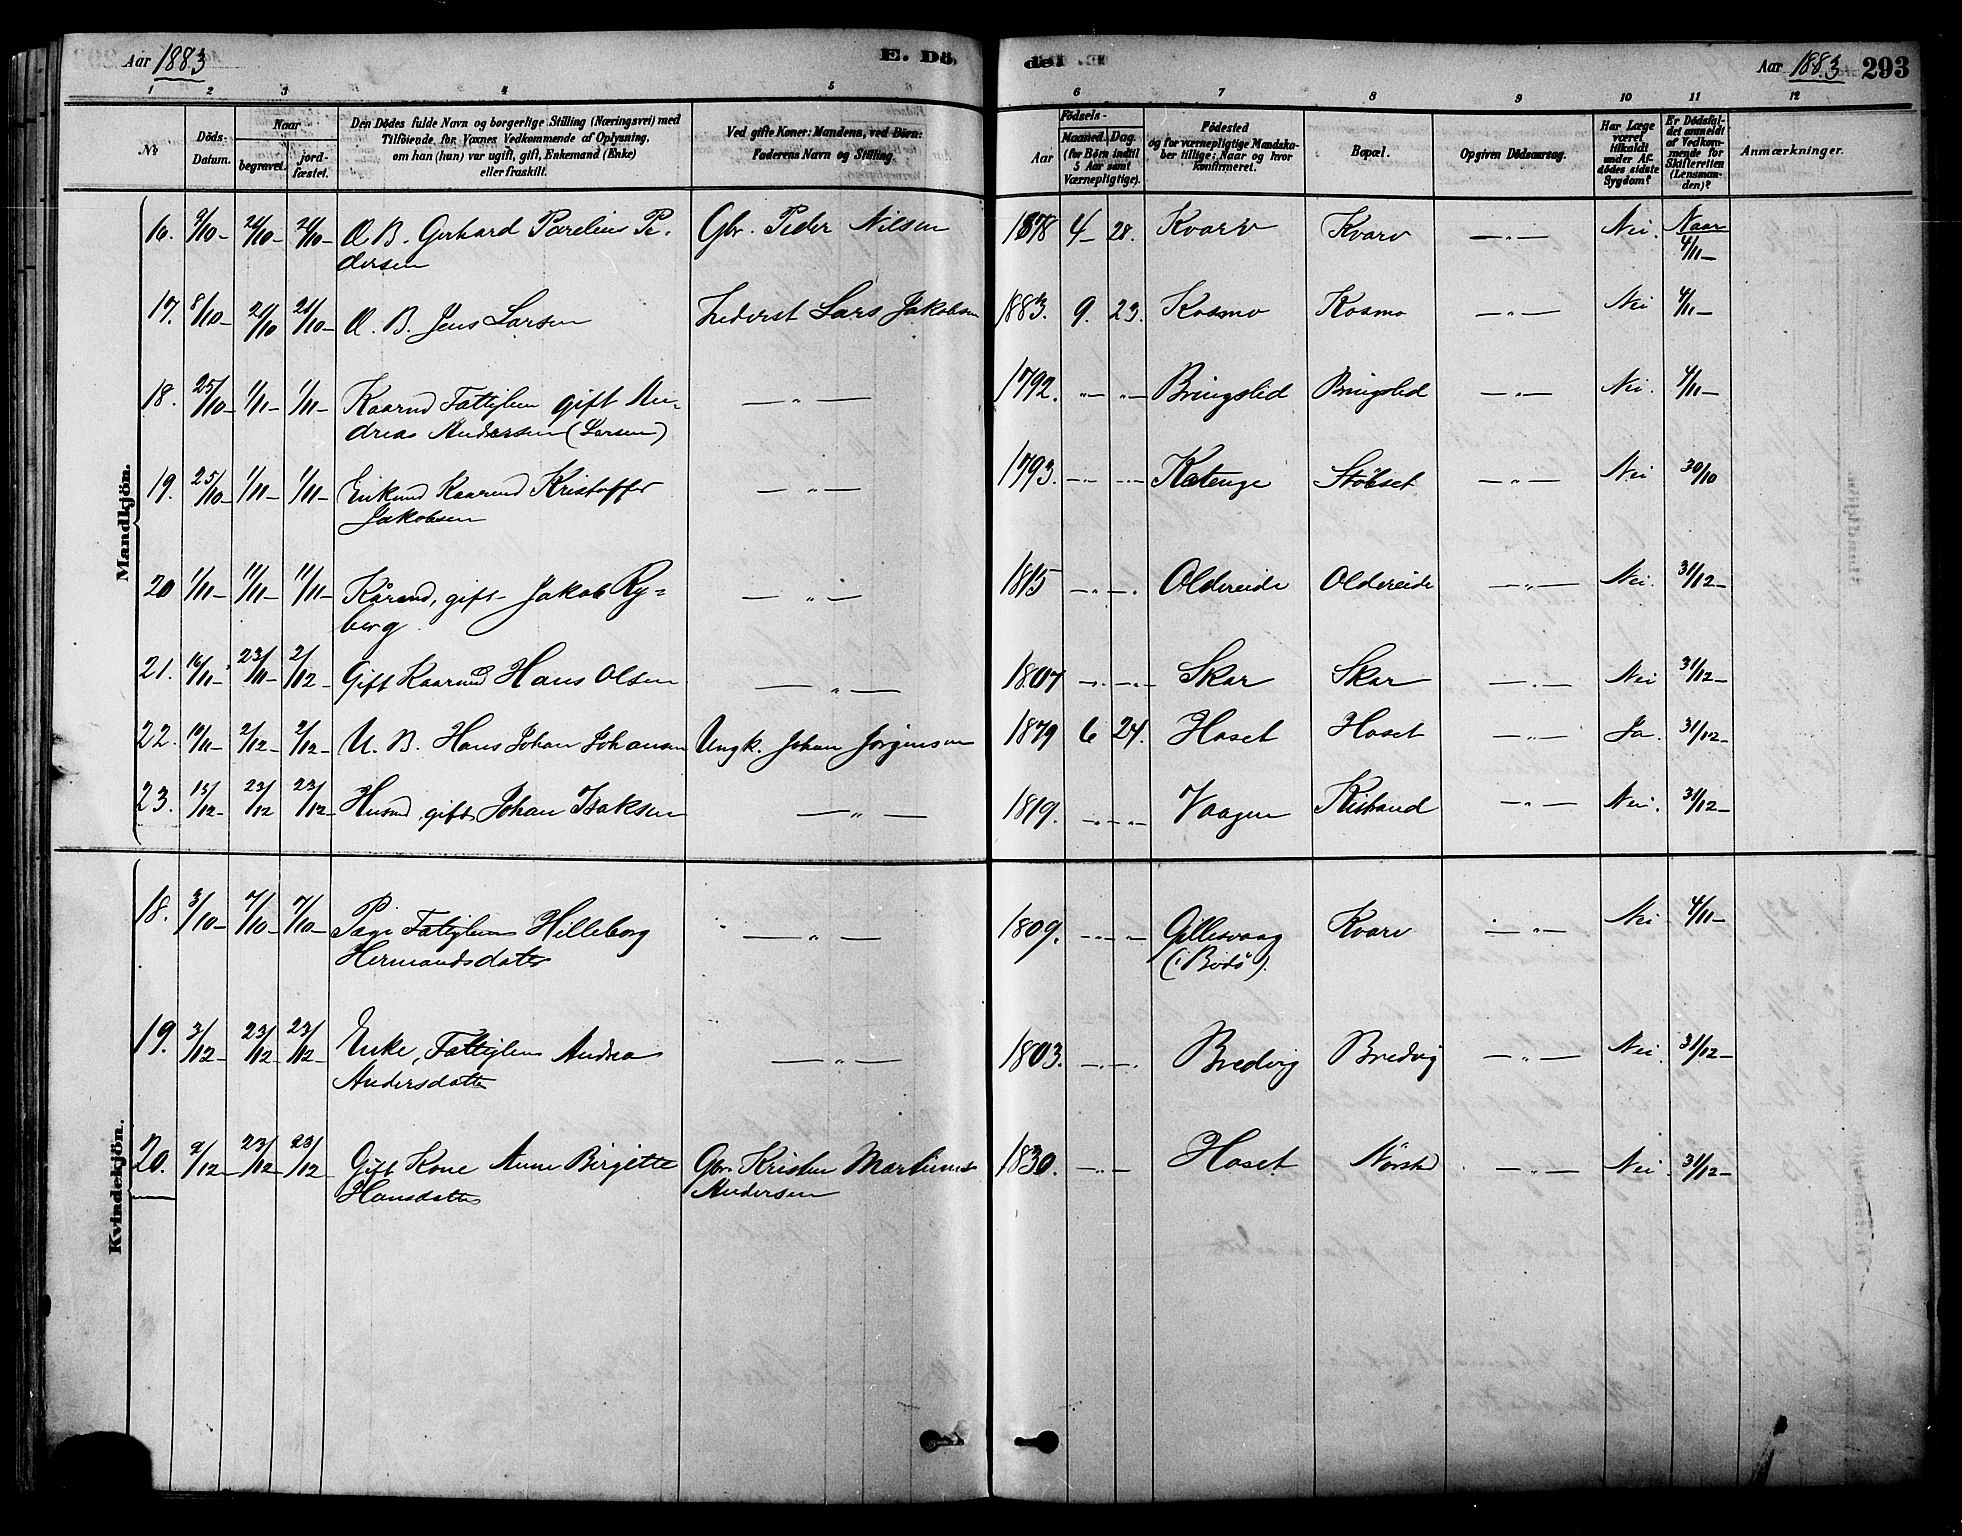 Aar 1883 E. Dö- del Aar 1883 293
1 2 3 4 5 6 7 8 9 10 11 12
No
Döds-Datum.
Naar
begravet.
jordfæstet.
Den Dödes fulde Navn og borgerlige Stilling (Næringsvei) med
Tilföiende, for Voxnes Vedkommende af Oplysning,
om han (hun) var ugift, gift, Enkemand (Enke)
eller fraskilt.
Ved gifte Koner: Mandens, ved Börn:
Faderens Navn og Stilling.
Födsels-
Aar
Maaned. Dag.
(for Börn indtil
5 Aar samt
Værnepligtige).
Födested
og for værnepligtige Mandskaber tillige: Naar og hvor
konfirmeret.
Bopæl.
Opgiven Dödsaarsag.
Har Læge
været
tilkaldt
under Afdödes sidste
Sygdom?
Er Dödsfaldet anmeldt
af Vedkommende for
Skifteretten
(Lensmanden)?
Anmærkninger.
Mandkjön.
16. 9/10- 21/10- 21/10- Æ. B. Gerhard Parelius Pe- Gbr. Peder Nilsen 1878 4- 28. Kvarv Kvarv —„— Nei. Naar 4/11-
dersen
17. 8/10- 21/10 21/10- Æ. B. Jens Larsen Lars Jakobsen 1883. 9. 23. Kosmo Kosmo —„— Nei 4/11-
18. 25/10- 1/11- 1/11- Kaarmd Fattiglem gift An- —„— 1792. —„— —„— Bringslid Bringslid —„— Nei. 4/11-
dreas Andersen (Larsen)
19. 25/10- 1/11- 1/11- Enkemd Kaarmd Kristoffer —„— 1793. —„— —„— Støbset —„— Nei 30/10
Jakobsen
20 1/11- 11/11- 11/11- Kårmd, gift Jakob Ry- —„— 1815 —„— —„— Oldereide Oldereide —„— Nei. 31/12-
berg.
21. 16/11- 23/11- 2/12- Gift Kaarmd Hans Olsen —„— 1807 —„— —„— Skar Skar —„— Nei 31/12-
22. 19/11- 2/12- 2/12- U. B. Hans Johan Johansen Ungk. Johan Jørgensen 1879 6 24. Hoset Hoset —„— Ja. 31/12-
23. 15/12- 23/12 23/12- Husmd gift Johan Isaksen —„— 1819. —„— —„— Vaagen —„— Nei. 31/12-
Kvindekjön.
18. 3/10- 7/10- 7/10- Pige Fattiglem Hilleborg —„— 1809. —„— —„— Gillesvaag Kvarv —„— Nei 4/11-
Hermandsdatter (i Bodö).
19. 3/12- 23/12- 23/12- Enke, Fattiglem Andrea —„— 1803. —„— —„— Bredvig Bredvig —„— Nei. 31/12-
Andersdatter
20. 9/12- 23/12- 23/12 Gift Kone Anne Birgitte Gbr. Kristen Martinus 1830. —„— Hoset —„— Nei 31/12-
Hansdatter Andersen